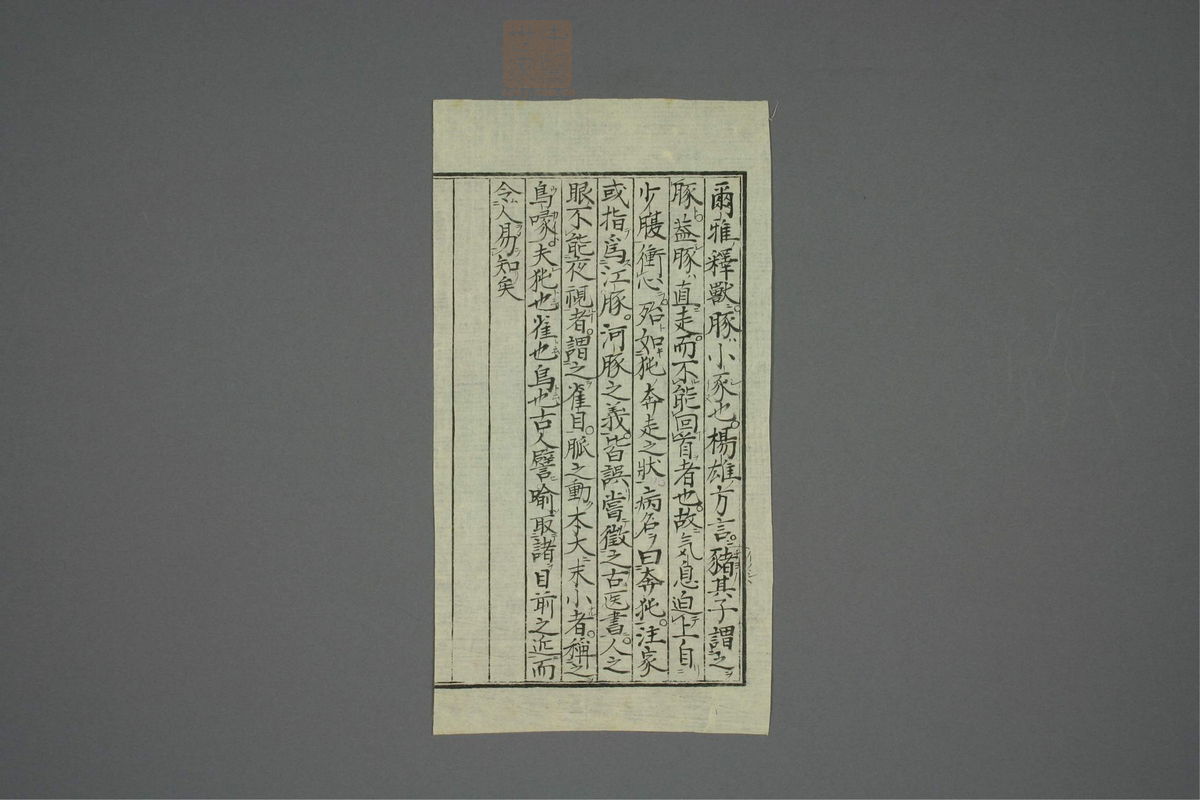 爾雅釋獸。豚小豕也。楊雄方言。豬其子謂之
豚。蓋豚直走。而不能回首者也。故気息迫上自
少腹衝心。殆如㹠奔走之狀。病名曰奔㹠。注家
或指爲江豚。河豚之義。皆誤當徵之古医書。人之
眼不能夜視者。謂之雀目。脈之動本大末小者。稱之
鳥喙。夫㹠也雀也鳥也古人譬喻取諸目前之近而
令人易知矣